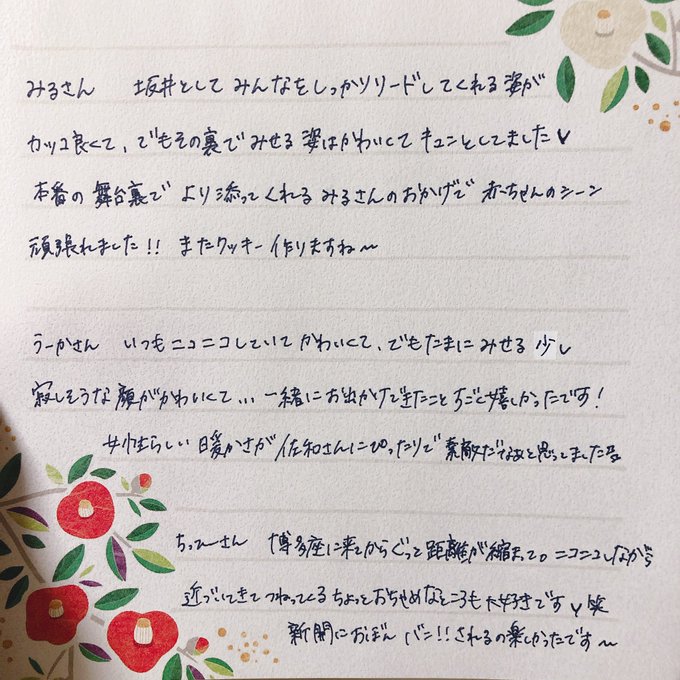 みるさん　坂井として みんなをしっかりリードしてくれる 姿が
カッコ良くて、でもその裏で みせる 姿はかわいくて キュンとしてました♥
本番の 舞台裏で より添ってくれる みるさんのおかげで 赤ちゃんのシーン
頑張れました!! またクッキー作りますね〜
うーかさん　いつもニコニコしていて かわいくて、でもたまに みせる 少し
寂しそうな 顔がかわいくて... 一緒に お出かけできたこと すごく嬉しかったです!
女性らしい 暖かさが 佐和さんにぴったりで 素敵だなぁと思ってました
ちってーさん　博多座に来てからぐっと 距離が 縮まって。ニコニコしながら
近づいてきて つねってくる ちょっとおちゃめなところも 大好きです♥笑
新聞におぼん バン!!されるの楽しかったです〜